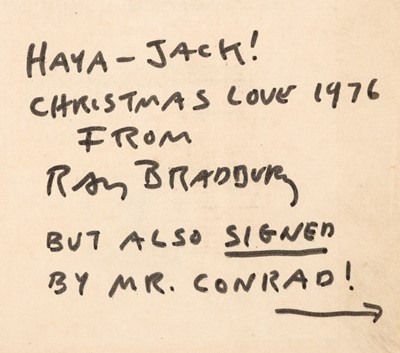 HAYA – JACK!
CHRISTMAS LOVE 1976
FROM
RAY BRADBURY
BUT ALSO SIGNED
BY MR. CONRAD!